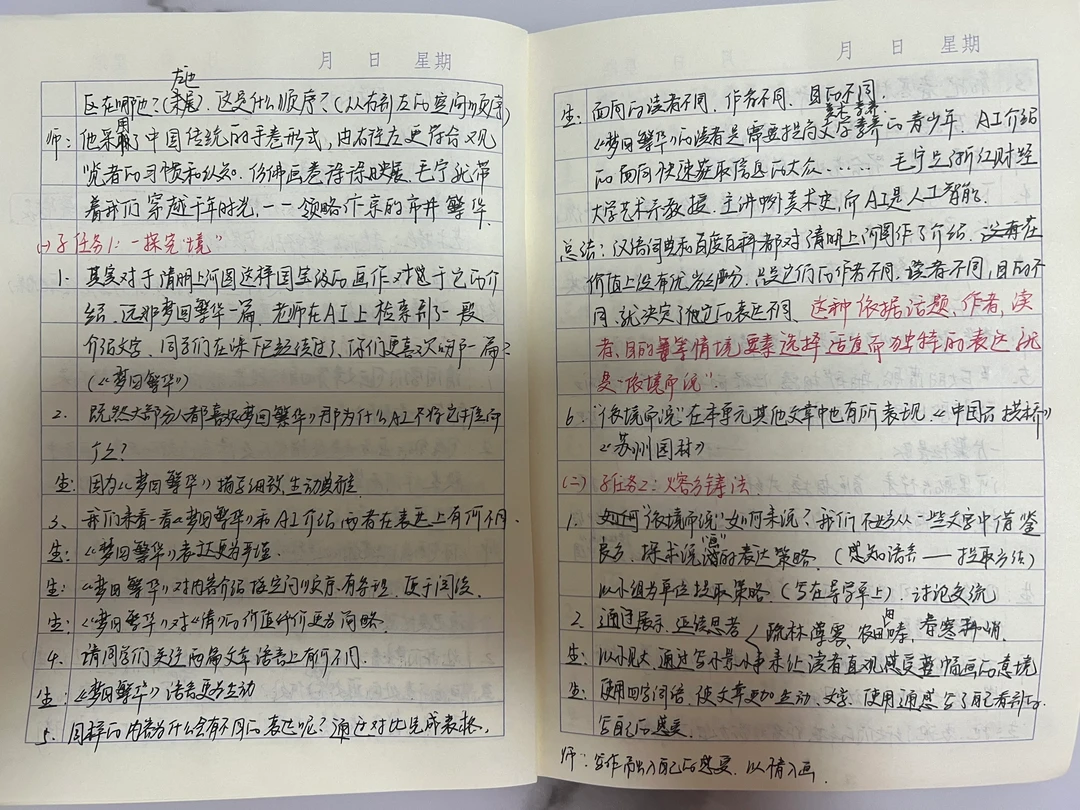 月 日 星期
左边
区在哪边?(末尾). 这是什么顺序?(从右到左的空间顺序)
师: 他采用了中国传统的手卷形式, 由右往左更符合观
览者的习惯和认知. 仿佛画卷徐徐展, 毛宁就带
着我们穿越千年时光, 一一领略汴京的市井繁华
(一) 子任务1: 一探究"境"
1. 其实对于清明上河图这样国宝级的画作对于它的介
绍, 远非梦回繁华一篇, 老师在AI上检索到了一段
介绍文字, 同学们在课下已经读过了, 你们更喜欢哪一篇?
(《梦回繁华》)
2. 既然大部分人都喜欢《梦回繁华》那为什么AI不将它
什么?
生: 因为《梦回繁华》描写细致, 生动典雅
3. 我们来看一看《梦回繁华》和AI介绍两者在表达上有何不同.
生: 《梦回繁华》表达更为
生: 《梦回繁华》对内容介绍按空间顺序, 有条理, 便于阅读
生: 《梦回繁华》对《清》的价值评价更为简略.
4. 请同学们关注两篇文章语言上有何不同.
生: 《梦回繁华》语言更为生动
5. 同样的内容为什么会有不同的表达呢? 通过对比完成表格,
月 日 星期
生: 面向的读者不同. 作者不同. 目的不同.
《梦回繁华》的读者是需要提高文学素养的青少年. AI介绍
的面向快速获取信息的大众...... 毛宁是浙江财经
大学艺术系教授. 主讲中外美术史, 而AI是人工智能.
总结: 汉语词典和百度百科都对清明上河图作了介绍.
价值上没有优劣之分. 只是它们的作者不同, 读者不同, 目的不
同, 就决定了他们的表达不同. 这种依据话题, 作者, 读
者, 目的等情境要素选择适宜而独特的表达就
是"依境而说".
6. "依境而说"在本单元其他文章中也有所表现. 《中国石拱桥》
《苏州园林》
(二) 子任务2: 熔字铸法.
1. "依境而说"如何来说? 我们不妨从一些文字中借鉴
良方, 探求说"画"的表达策略. (感知语言——提取方法)
以小组为单位提取策略. (写在导学单上). 讨论交流
2. 通过展示. 还须思考 疏林薄雾. 农田 春寒料峭.
生: 以小见大, 通过写小景小事来让读者直观感受整幅画的意境
生: 使用四字词语, 使文章更加生动. 文字. 使用通感写了自己看到的.
写自己的感受.
师: 写作而出入自己的感受. 以情入画.